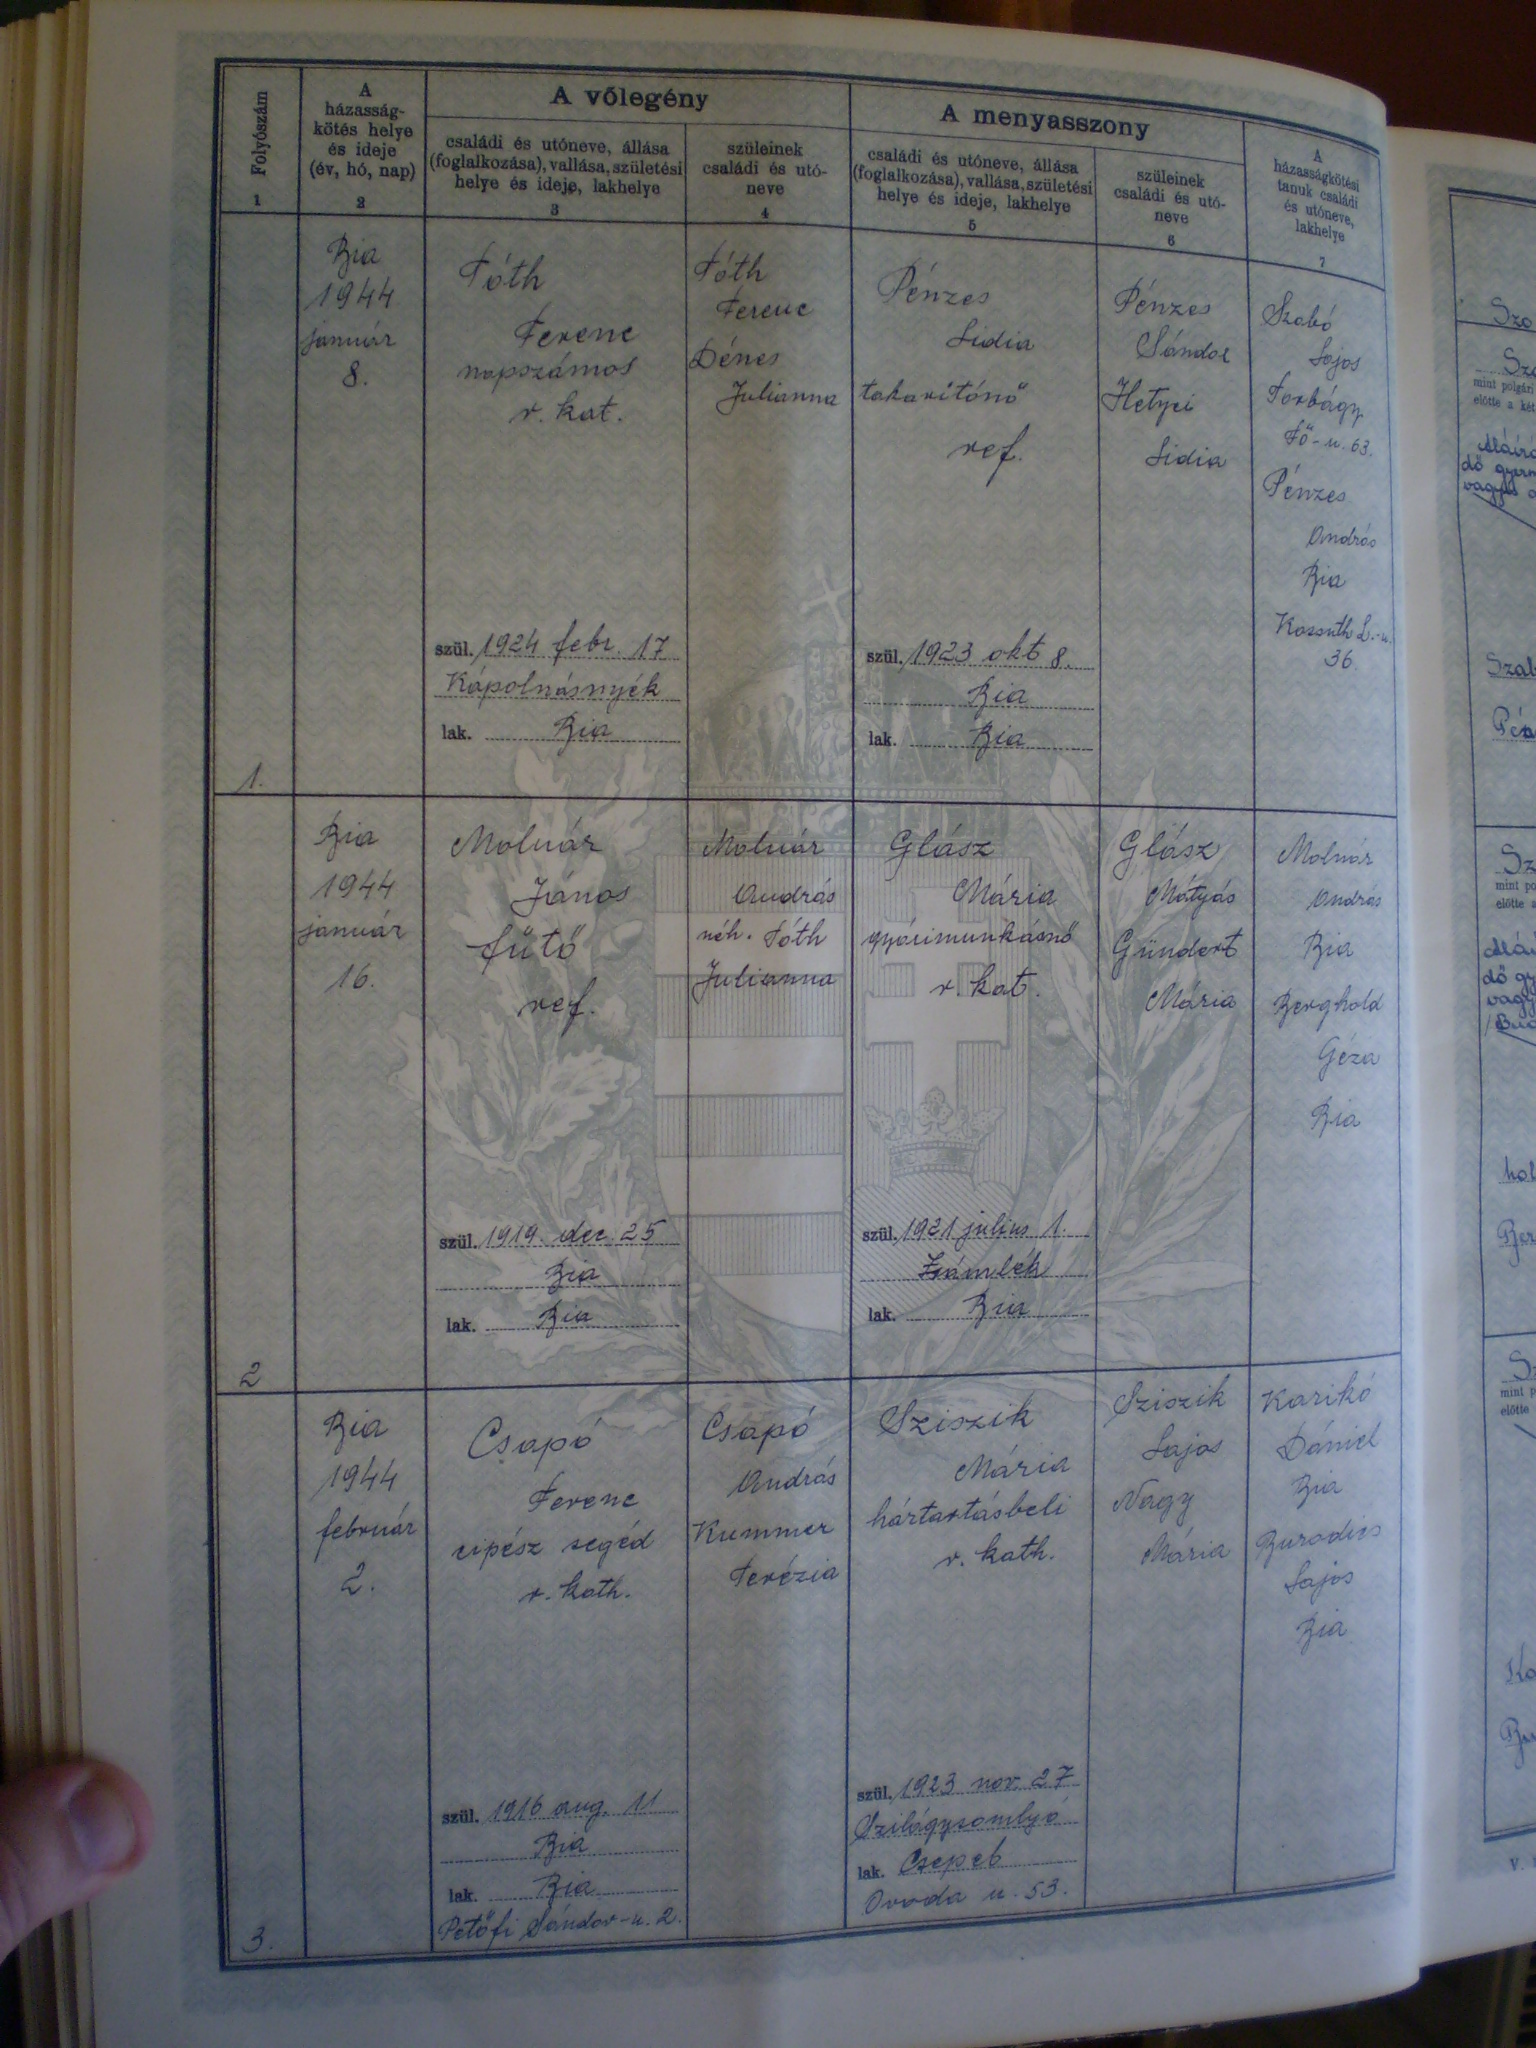 Folyószám
1
A
házasság-
kötés helye
és ideje
(év, hó, nap)
2
A vőlegény
családi és utóneve, állása
(foglalkozása), vallása, születési
helye és ideje, lakhelye
3
szüleinek
családi és utó-
neve
4
A menyasszony
családi és utóneve, állása
(foglalkozása), vallása, születési
helye és ideje, lakhelye
5
szüleinek
családi és utó-
neve
6
A
házasságkötési
tanuk családi
és utóneve,
lakhelye
7
1.
Bia
1944
január
8.
Tóth
Ferenc
napszámos
r. kat.
szül. 1924 febr. 17
Kápolnásnyék
lak. Bia
Tóth
Ferenc
Dénes
Julianna
Pénzes
Lidia
takarítónő
ref.
szül. 1923 okt 8.
Bia
lak. Bia
Pénzes
Sándor
Hetyei
Lidia
Szabó
Lajos
Torbágy
Fő-u. 63.
Pénzes
András
Bia
Kossuth L.-u.
36.
2
Bia
1944
január
16.
Molnár
János
fűtő
ref.
szül. 1919. dec. 25
Bia
lak. Bia
Molnár
András
néh. Tóth
Julianna
Glász
Mária
gyárimunkásnő
r. kat.
szül. 1921 julius 1.
Zsámbék
lak. Bia
Glász
Mátyás
Gündert
Mária
Molnár
András
Bia
Berghold
Géza
Bia
3.
Bia
1944
február
2.
Csapó
Ferenc
cipész segéd
r. kath.
szül. 1916 aug. 11
Bia
lak. Bia
Petőfi Sándor-u. 2.
Csapó
András
Kummer
Terézia
Sziszik
Mária
háztartásbeli
r. kath.
szül. 1923 nov. 27
Szilágysomlyó
lak. Csepel
Ovoda u. 53.
Sziszik
Lajos
Nagy
Mária
Karikó
Dániel
Bia
Lajos
Bia